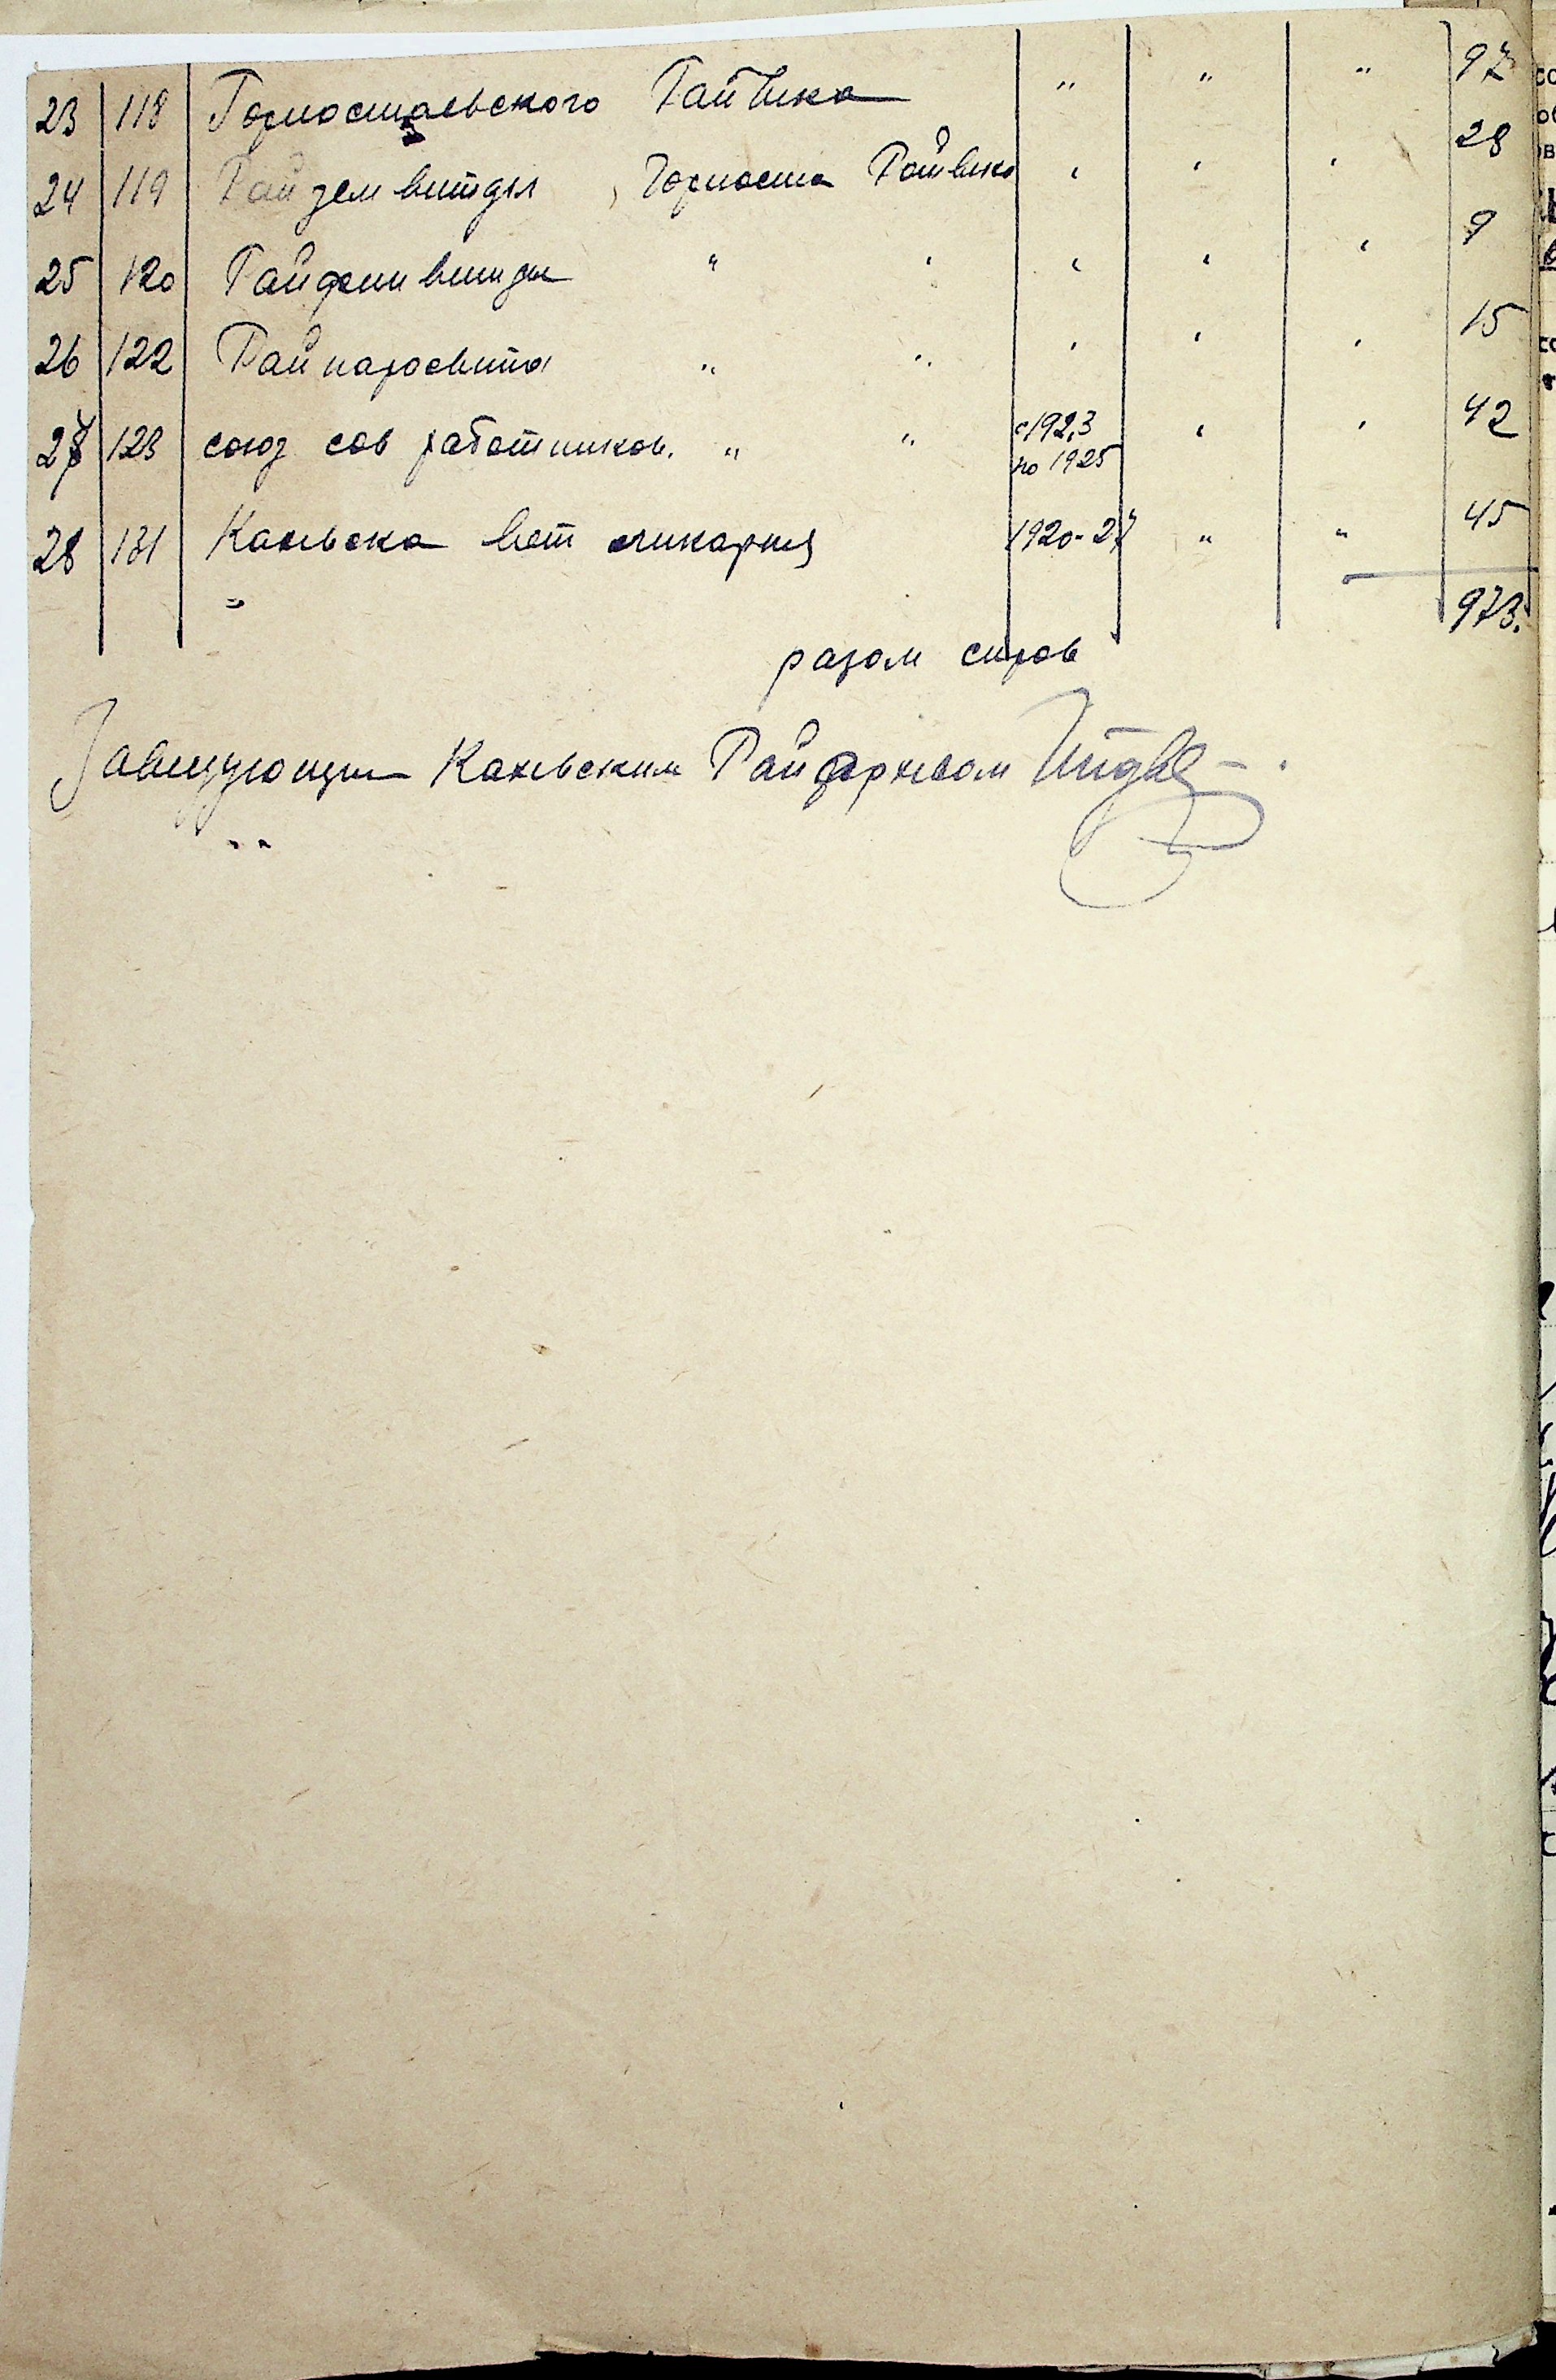 23 118 Горностаевского Райвика " " " 97
24 119 Райземвитдел, Горноста Райвик " " " 28
25 120 " " " " " 9
26 122 Райнаросвита " " " " " 15
27 123 союз сов работников. " " с 1923 по 1925 " " 42
28 131 Кахывска вет ликарня 1920-27 " " 45
973.
разом справ
Заведующий Каховским Райархивом